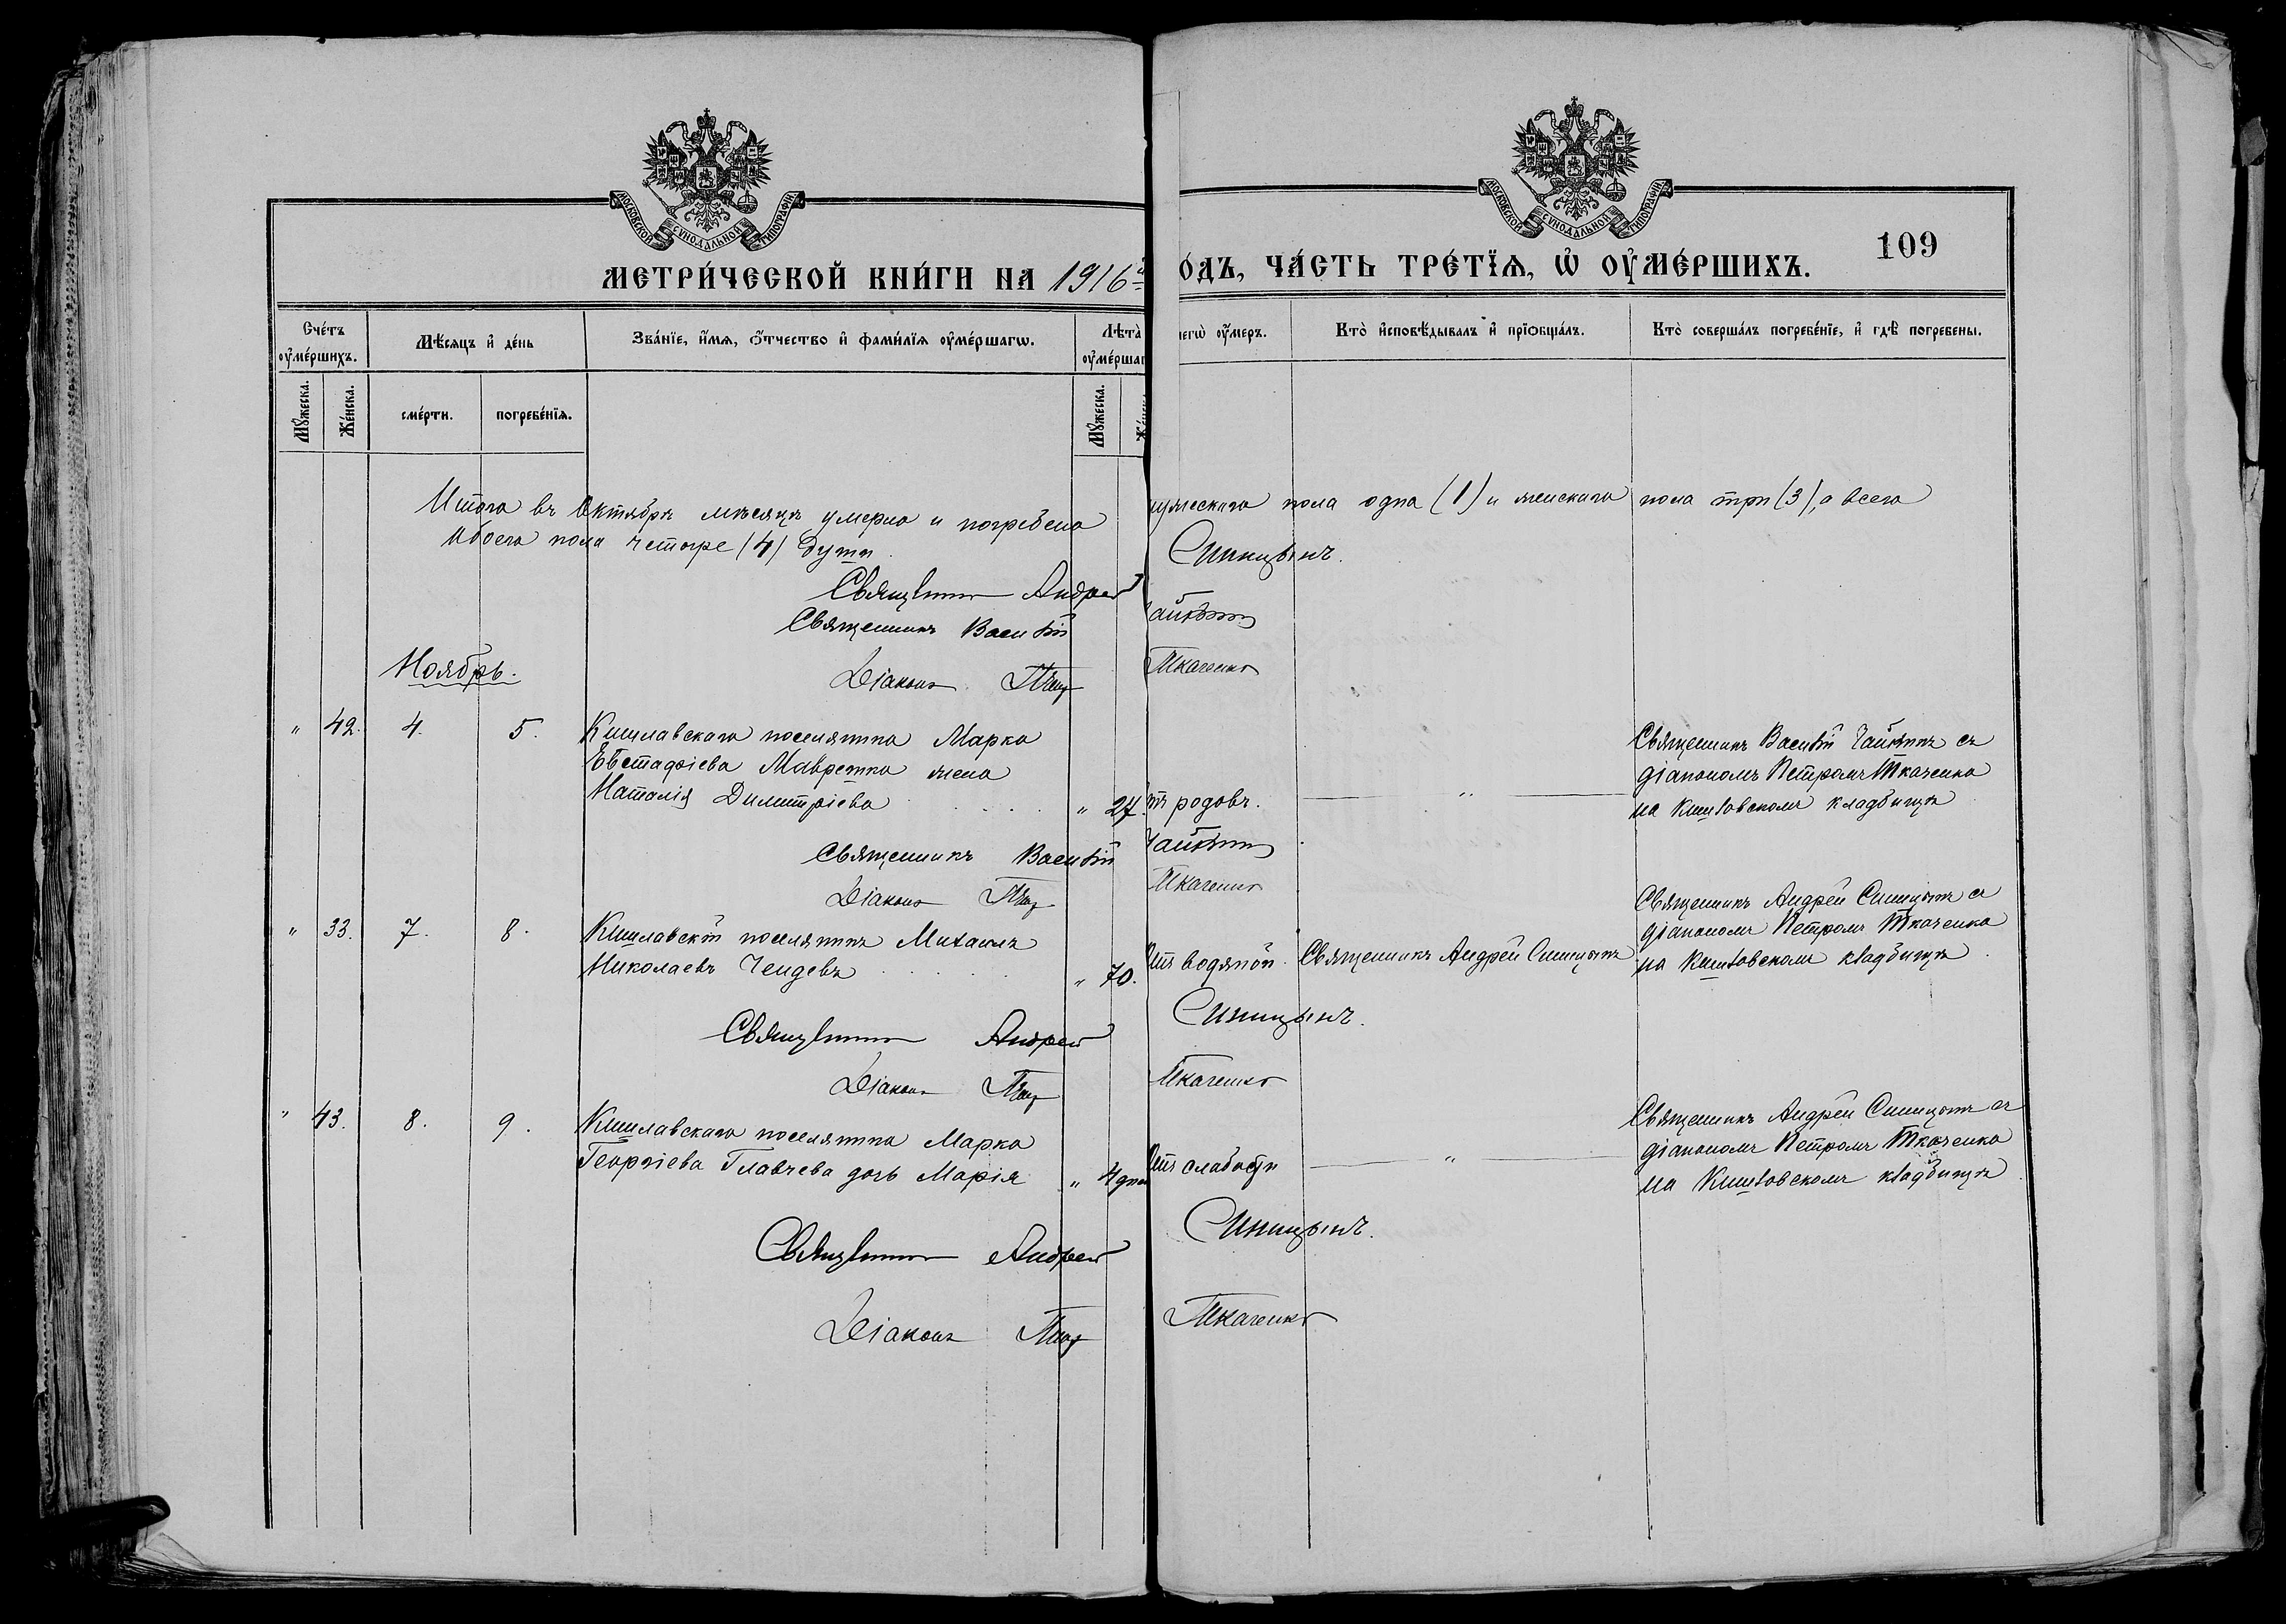 МОСКОВСКОЙ СѴНОДАЛЬНОЙ ТИПОГРАФІИ
МОСКОВСКОЙ СѴНОДАЛЬНОЙ ТИПОГРАФІИ
МЕТРИ́ЧЕСКОЙ КНИ́ГИ НА 1916й
ОДЪ, ЧА́СТЬ ТРЕ́ТЇѦ, Ѡ҆ ОУ҆МЕ́РШИХЪ.
109
Сче́тъ оу҆ме́ршихъ.
Мѣ́сяцъ и҆ де́нь
Зва́нїе, и҆́мѧ, ѻ҆́тчество и҆ фами́лїѧ оу҆ме́ршагѡ.
Лѣта̀ оу҆ме́ршаг
чегѡ̀ оу҆́меръ.
Кто̀ и҆сповѣ́дывалъ и҆ прїѻбща́лъ.
Кто̀ соверша́лъ погребе́нїе, и҆ гдѣ̀ погребены.
Му́жеска.
Же́нска.
сме́рти.
погребе́нїѧ.
Му́жеска.
Итого въ Октябрѣ мѣсяцѣ умерло и погребено мужескаго пола одна (1) и женскаго пола три (3), а всего
обоего пола четыре (4) души.
Священникъ Андрей Синицынъ.
Священникъ Василій Чайкинъ
Діаконъ Петръ Ткаченко
Ноябрь.
" 42. 4. 5. Кишлавскаго поселянина Марка
Евстафіева Мавретка жена
Наталія Димитріева " 27. отъ родовъ. "
Священникъ Василій Чайкинъ съ
діакономъ Петромъ Ткаченко
на Кишлавскомъ кладбищѣ
Священникъ Василій Чайкинъ
Діаконъ Петръ Ткаченко
" 33. 7. 8. Кишлавскій поселянинъ Михаилъ
Николаевъ Чендевъ " 70. Отъ водяной. Священникъ Андрей Синицынъ
Священникъ Андрей Синицынъ съ
діакономъ Петромъ Ткаченко
на Кишлавскомъ кладбищѣ.
Священникъ Андрей Синицынъ.
Діаконъ Петръ Ткаченко
" 43. 8. 9. Кишлавскаго поселянина Марка
Георгіева Главчева дочь Марія " 4 дня Отъ слабости "
Священникъ Андрей Синицынъ съ
діакономъ Петромъ Ткаченко
на Кишлавскомъ кладбищѣ.
Священникъ Андрей Синицынъ.
Діаконъ Петръ Ткаченко